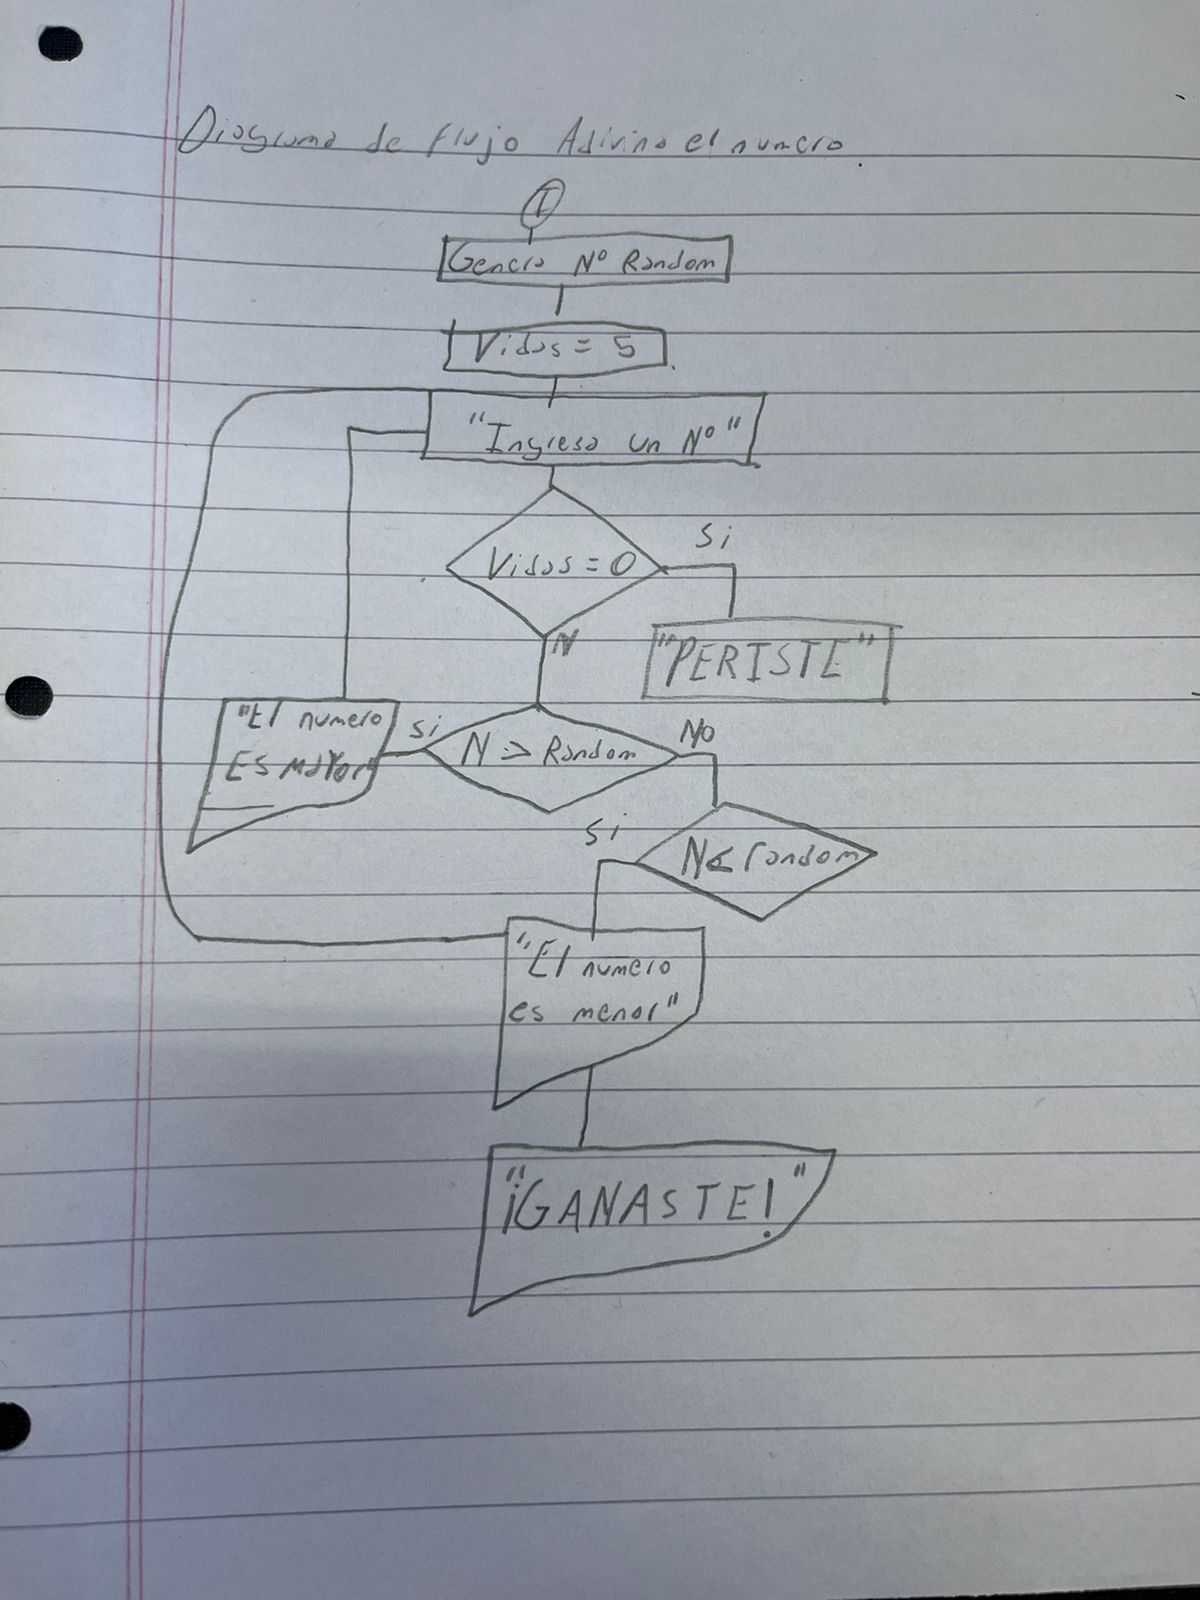 Diagrama de flujo Adivina el numero
I
Genera N° Random
Vidas = 5
"Ingresa un N°"
Vidas = 0
Si
N
"PERISTE"
"El numero
ES MAYOR
si
N => Random
No
Si
N< random
"El numero
es menor"
"¡GANASTE!"